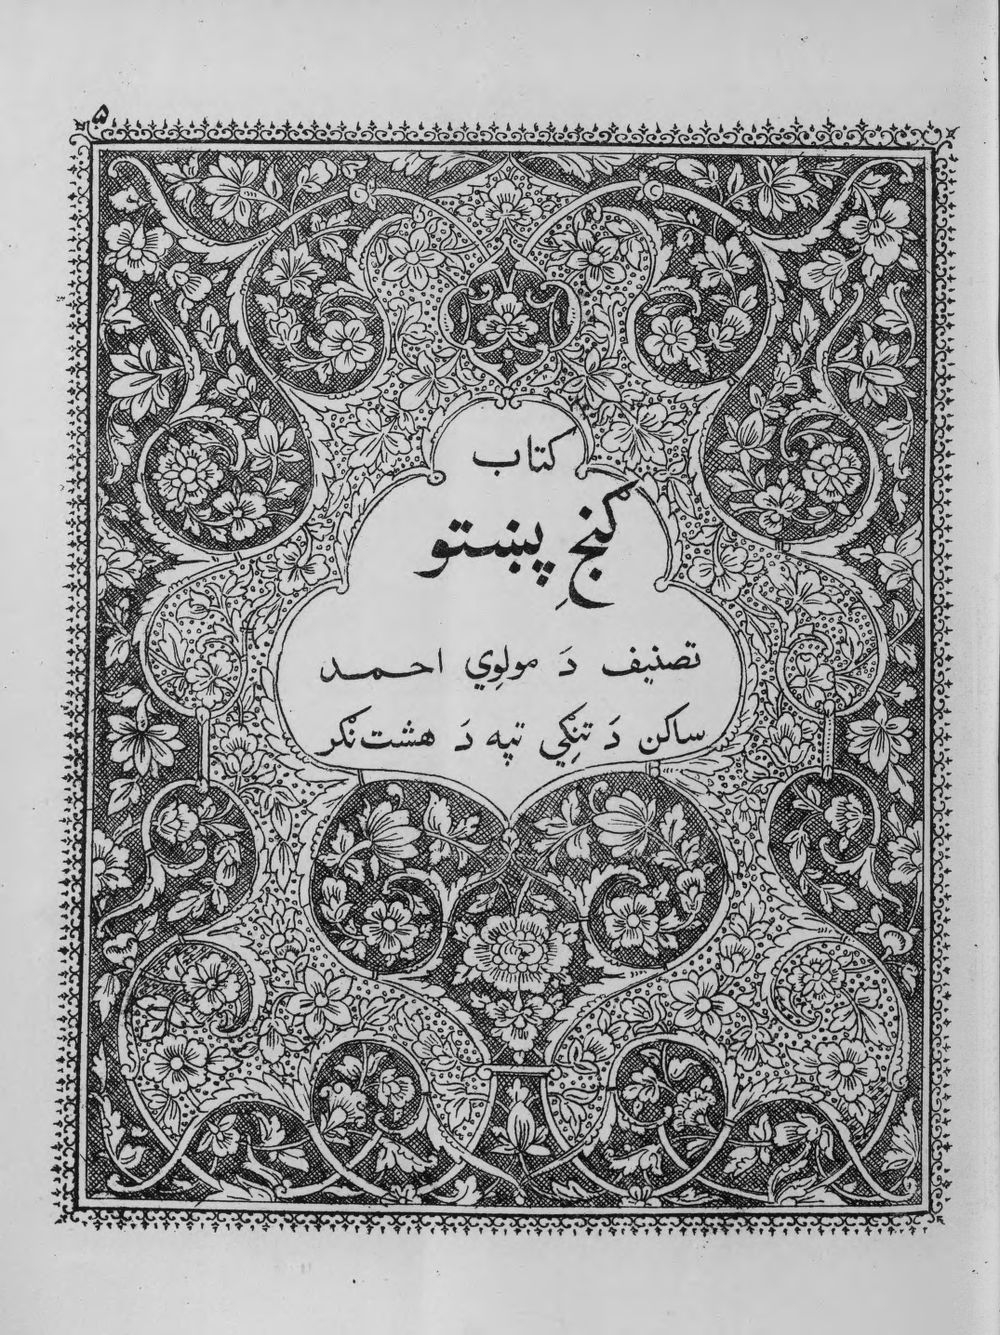 ۵
کتاب
گنجِ پښتو
تصنیف دَ مولوِي احمد
ساکن دَ تنکِي تپه دَ هشت‌نکر